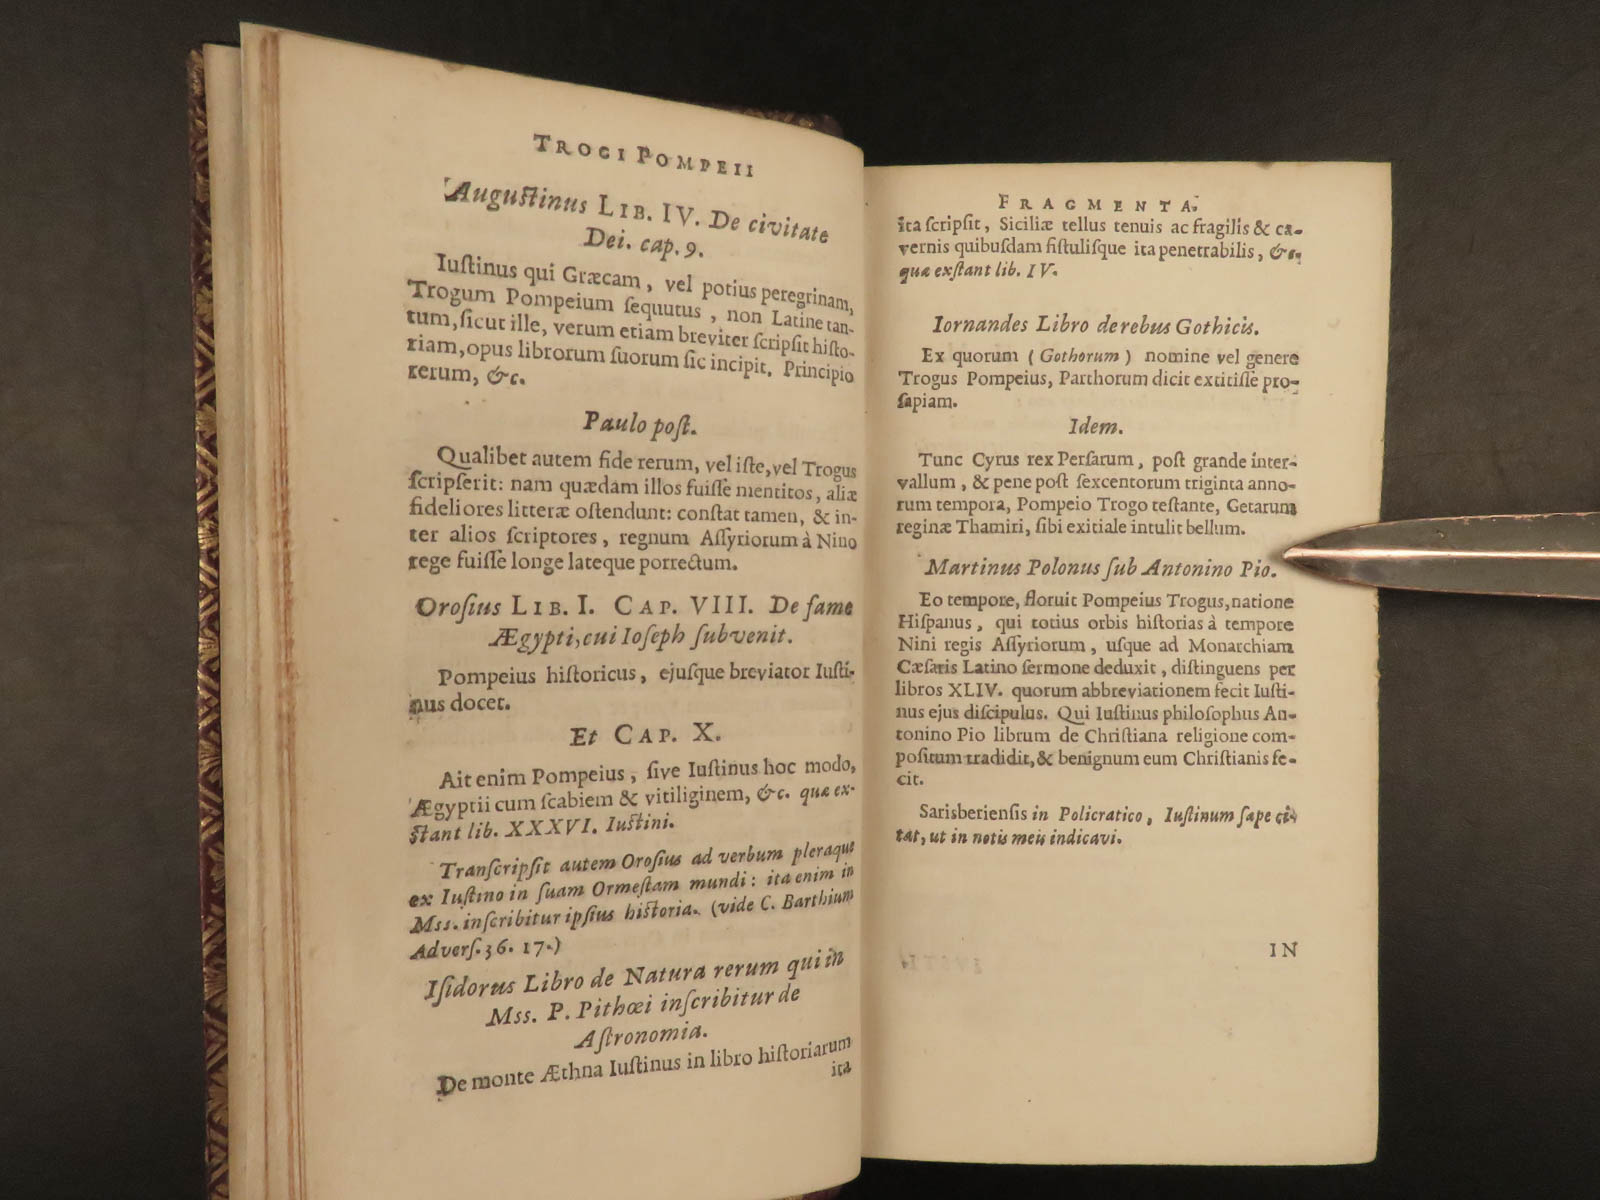 TROGI POMPEII
Augustinus LIB. IV. De civitate
Dei. cap. 9.
Iuſtinus qui Græcam, vel potius peregrinam,
Trogum Pompeium ſequutus, non Latine tan-
tum, ſicut ille, verum etiam breviter ſcripſit hiſto-
riam, opus librorum ſuorum ſic incipit. Principio
rerum, &c.
Paulo poſt.
Qualibet autem fide rerum, vel iſte, vel Trogus
ſcripſerit: nam quædam illos fuiſſe mentitos, aliæ
fideliores litteræ oſtendunt: conſtat tamen, & in-
ter alios ſcriptores, regnum Aſſyriorum à Nino
rege fuiſſe longe lateque porrectum.
Oroſius LIB. I. CAP. VIII. De fame
Ægypti, cui Ioſeph ſubvenit.
Pompeius hiſtoricus, ejuſque breviator Iuſti-
nus docet.
Et CAP. X.
Ait enim Pompeius, ſive Iuſtinus hoc modo,
Ægyptii cum ſcabiem & vitiliginem, &c. quæ ex-
ſtant lib. XXXVI. Iuſtini.
Tranſcripſit autem Oroſius ad verbum pleraque
ex Iuſtino in ſuam Ormeſtam mundi: ita enim in
Mss. inſcribitur ipſius hiſtoria. (vide C. Barthium
Adverſ. 36. 17.)
Iſidorus Libro de Natura rerum qui in
Mss. P. Pithœi inſcribitur de
Aſtronomia.
De monte Æthna Iuſtinus in libro hiſtoriarum
ita
FRAGMENTA.
ita ſcripſit, Siciliæ tellus tenuis ac fragilis & ca-
vernis quibuſdam fiſtuliſque ita penetrabilis, &c.
quæ exſtant lib. IV.
Iornandes Libro de rebus Gothicis.
Ex quorum (Gothorum) nomine vel genere
Trogus Pompeius, Parthorum dicit extitiſſe pro-
ſapiam.
Idem.
Tunc Cyrus rex Perſarum, poſt grande inter-
vallum, & pene poſt ſexcentorum triginta anno-
rum tempora, Pompeio Trogo teſtante, Getarum
reginæ Thamiri, ſibi exitiale intulit bellum.
Martinus Polonus ſub Antonino Pio.
Eo tempore, floruit Pompeius Trogus, natione
Hiſpanus, qui totius orbis hiſtorias à tempore
Nini regis Aſſyriorum, uſque ad Monarchiam
Cæſaris Latino ſermone deduxit, diſtinguens per
libros XLIV. quorum abbreviationem fecit Iuſti-
nus ejus diſcipulus. Qui Iuſtinus philoſophus An-
tonino Pio librum de Chriſtiana religione com-
poſitum tradidit, & benignum eum Chriſtianis fe-
cit.
Sarisberienſis in Policratico, Iuſtinum ſæpe ci-
tat, ut in notis meis indicavi.
IN